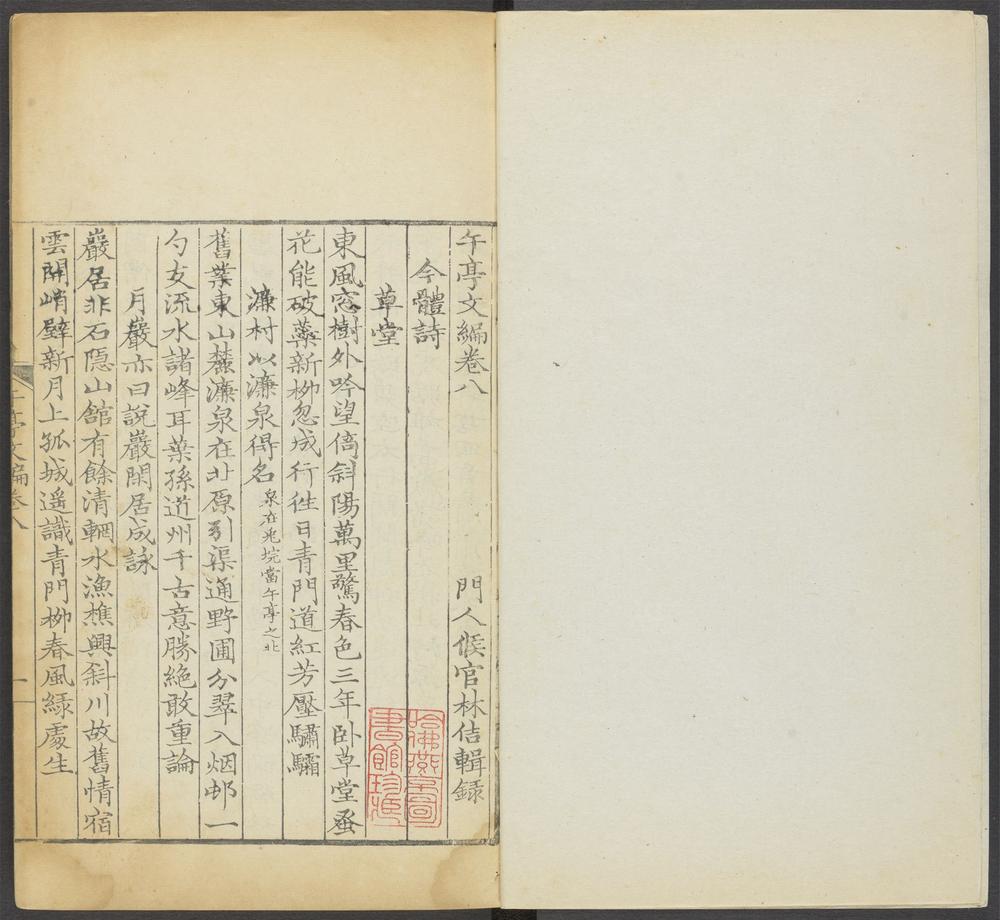 午亭文編卷八
門人候官林佶輯錄
今體詩
草堂
東風窓樹外吟望倚斜陽萬里驚春色三年卧草堂蚤
花能破蘂新栁忽成行徃日青門道紅芳壓驌驦
濂村以濂泉得名泉在老坑當午亭之北
舊業東山麓濂泉在北原引渠通野圃分翠入烟邨一
勺支流水諸峰耳葉孫道州千古意勝絶敢重論
月巖亦曰說巖閑居成詠
巖居非石隠山舘有餘清輞水漁樵興斜川故舊情宿
雲開峭壁新月上孤城遥識青門栁春風緑處生
午亭文編卷八
一
哈佛燕京圖
書館珍藏